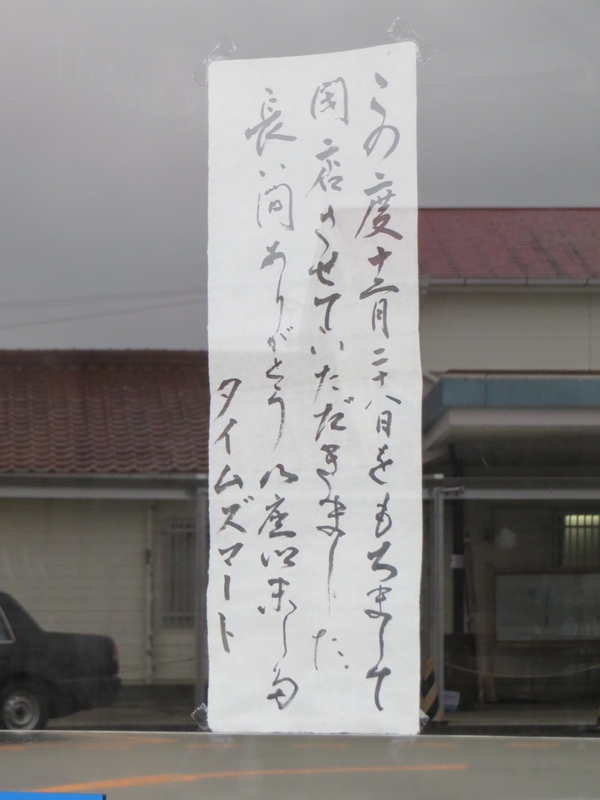 この度十二月二十八日をもちまして
閉店させていただきました。
長い間ありがとう御座以末し多
タイムズマート